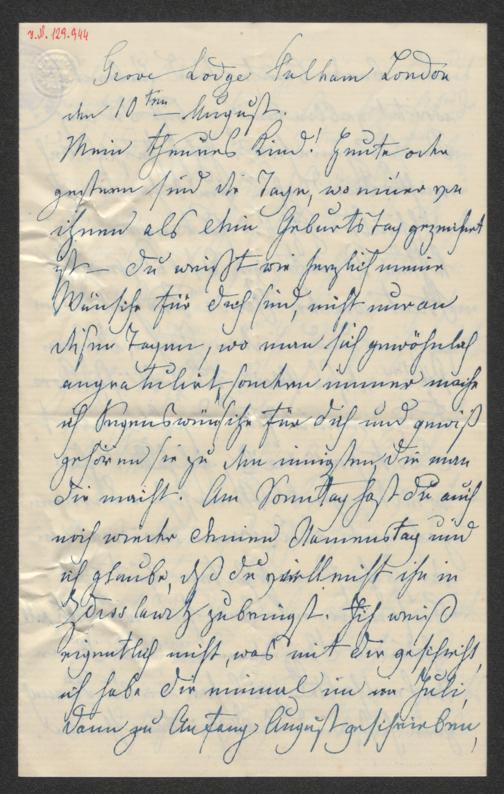 v. N. 129.944
Grove Lodge Fulham London
den 10ten August.
Mein theures Kind! Heute oder
gestern sind die Tage, wo einer von
ihnen als Dein Geburtstag gezeichnet
ist. Du weißt wie herzlich meine
Wünsche für Dich sind, nicht nur an
diesen Tagen, wo man sich gewöhnlich
angratulirt, sondern immer mache
ich Segenswünsche für Dich und gewiß
gehören sie zu den innigsten, die man
Dir macht. Am Sonntag hast Du auch
noch wieder Deinen Namenstag und
ich glaube, daß Du vielleicht ihn in
zubringst. Ich weiß
eigentlich nicht, was mit Dir geschieht,
ich habe Dir einmal im Juli,
dann zu Anfang August geschrieben,